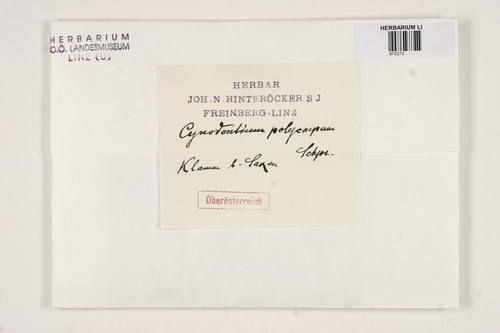 HERBARIUM
O.Ö. LANDESMUSEUM
LINZ (LI)
HERBARIUM LI
970273
HERBAR
JOH. N. HINTERÖCKER S J
FREINBERG-LINZ
Cynodontium polycarpum
Schpr.
Klamm b. Saxen
Oberösterreich